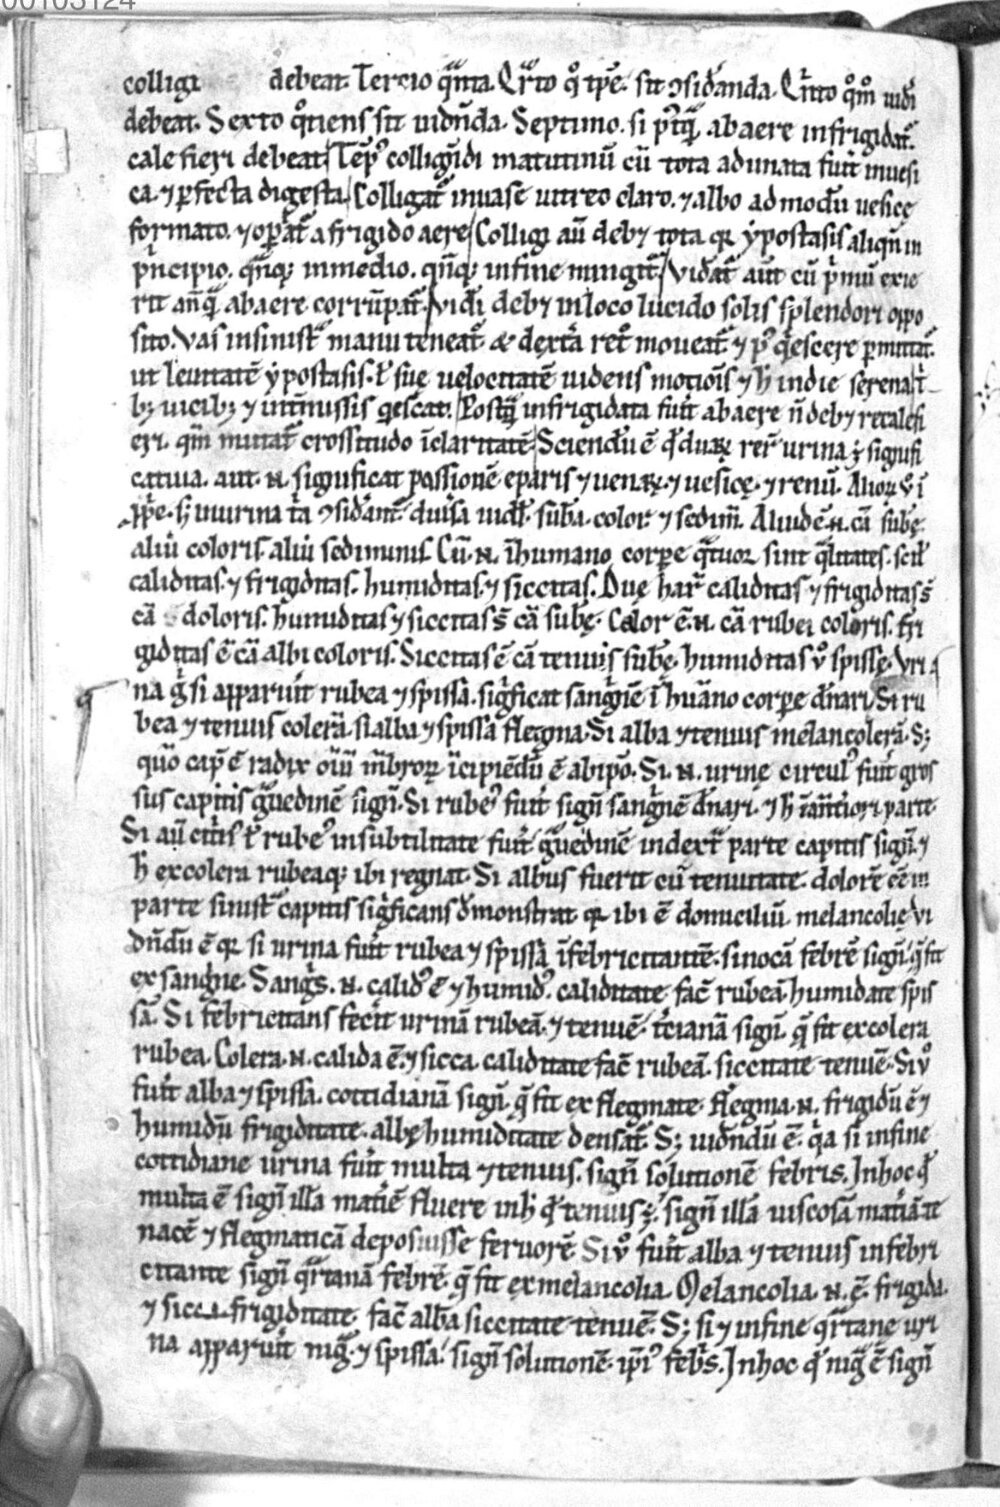 00103124
colligi debeat. Tercio q̄nta. Qr̄to qͦ tp̄e. sit ꝯsidāanda. Qͥnto qͦm uidi
debeat. Sexto qͦtiens sit uidn̄da. Septimo. si pꝰtq̄ abaere infrigidat̄.
calefieri debeat. Tēpꝰ collign̄di matutinū cū tota adunata fuīt inuesi
ca. ⁊ ꝑfecta digesta. Colligat̄ inuase uitreo claro. ⁊ albo admodū uesicę
formato. ⁊ oꝑiat̄ afrigido aere. Colligi aū deb⁊ tota qꝛ ẏpostasis aliqn̄ in
pͥncipio. qn̄q; inmedio. qn̄q; infine mingit̄. Vidat̄ aūt cū pͥmū exie
rit an̄q̄ abaere corrūpat̄. Vidi deb⁊ inloco lucido solis splendori oppo
sito. Vas insinistͣ manu teneat̄. & dext̄a ret̄ moueat̄ ⁊ pꝰ qͥescere ꝑmittat̄.
ut leuitatē ẏpostasis. ł suę uelocitatē uidens motiōis ⁊ h̄ indie serena
b; uicib; ⁊ int̄missis qͥescat. Postq̄ infrigidata fuīt abaere n̄ deb⁊ recalefi
eri. qm̄ mutat̄ crossitudo īclaritatē. Sciendū ē qd̄ duaꝝ rer̄ urina ē signifi
catiua. aut .N. significat passionē eparis ⁊ uenaꝝ. ⁊ uesicę. ⁊ renū. Alioꝝ ū ī
ꝓpͥe. S; inurina tͥa ꝯsidānt̄. diuͥsa uidł. sub̄a. color ⁊ sedim̄. Aliudē .N. cā sub̄ę.
aliū coloris. aliū sediminis. Cū .N. īhumano corꝑe qͣtuor sint qͣlitates. scił
caliditas. ⁊ frigiditas. humiditas. ⁊ siccitas. Duę har̄ caliditas ⁊ frigiditas s̄
cā doloris. humiditas ⁊ siccitas s̄ cā sub̄ę. Calor ē .N. cā rubei coloris. fri
giditas ē cā albi coloris. Siccitas ē cā tenuis sub̄ę. humiditas ū̊ spissę. Vri
na ḡ si apparuīt rubea ⁊ spissa. sigͥficat sangͥnē ī huāno corꝑe dn̄ari. Si ru
bea ⁊ tenuis colerā. si alba ⁊ spissa flegma. Si alba ⁊ tenuis melancolerā. S;
quō cap̄ ē radix oīū m̄broꝝ īcipiēdū ē abip̄o. Si .N. urinę circulꝰ fuīt gros
sus capitis gͣuedinē sign̄. Si rubeꝰ fuīt sign̄ sangͥnē dn̄ari. ⁊ h̄ īant̄iori parte
Si aū cit̄s ł rubeꝰ insubtilitate fuīt gͣuedinē indext̄ parte capitis sign̄. ⁊
h̄ excolera rubeaq; ibi regnat. Si albus fuerit cū tenuitate. dolorē eē in
parte sinistͣ capitis sigͥficans dꝰmonstrat qꝛ ibi ē domiciliū melancolię Vi
dn̄dū ē qꝛ si urina fuīt rubea ⁊ spissa īfebricitantē. sinocā febrē sign̄. q̄ fit
ex sangͥne. Sangͥs .N. calidꝰ ē ⁊ humidꝰ. caliditate fac̄ rubeā. humidate spis
sā. Si febricitans fec̄it urinā rubeā. ⁊ tenuē. t̄cianā sign̄. q̄ fit excolera
rubea. Colera .N. calida ē. ⁊ sicca. caliditate fac̄ rubeā. siccitate tenuē. Si ū̊
fuīt alba ⁊ spissa. cottidianā sign̄. q̄ fit ex flegmate. flegma .N. frigidū ē ⁊
humidū frigiditate. albę humiditate densat̄. S; uidn̄dū ē. qͥa si infine
cottidiane urina fuīt multa ⁊ tenuis. sign̄ solutionē febris. Inhoc qd̄
multa ē sign̄ illā matīē fluere inh̄ qd̄ tenuis ē. sign̄ illā uiscosā matīā te
nacē ⁊ flegmaticā deposuisse feruorē. Si ū̊ fuīt alba ⁊ tenuis infebri
citante sign̄ qr̄tanā febrē. q̄ fit ex melancolia. Melancolia .N. ę. frigida.
⁊ sicca. frigiditate. fac̄ albā siccitate tenuē. S; si ⁊ infine qr̄tanę uri
na apparuīt nigͣ. ⁊ spissa. sign̄ solutionē. ip̄iꝰ feb̄s. Inhoc qd̄ nigͣ ē sign̄